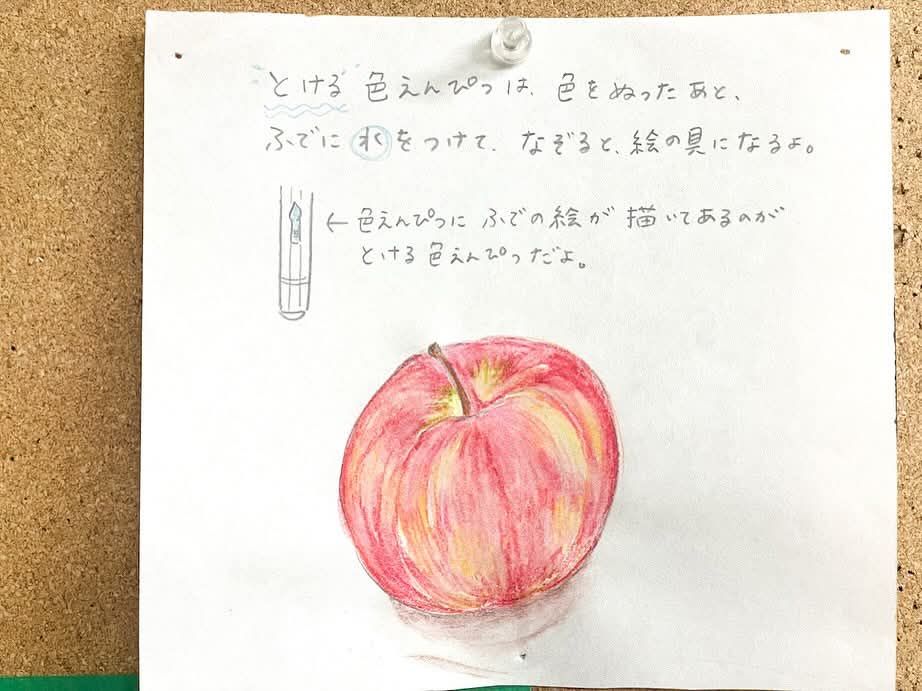 とける色えんぴつは、色をぬったあと、
ふでに水をつけて、なぞると、絵の具になるよ。
←色えんぴつにふでの絵が描いてあるのが
とける色えんぴつだよ。